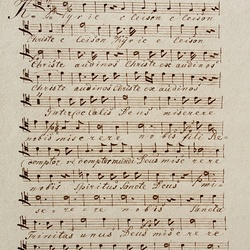 Kyrie eleison eleison
Christe eleison Kyrie eleison
Christe audi nos Christe ex audi nos
Christe audi nos Christe ex audi nos
Pater de coelis Deus miserere
nobis miserere nobis fili Re
demptor redemptor mundi Deus miserere
nobis Spiritus Sancte Deus mi
serere nobis Sancta
Trinitas unus Deus miserere